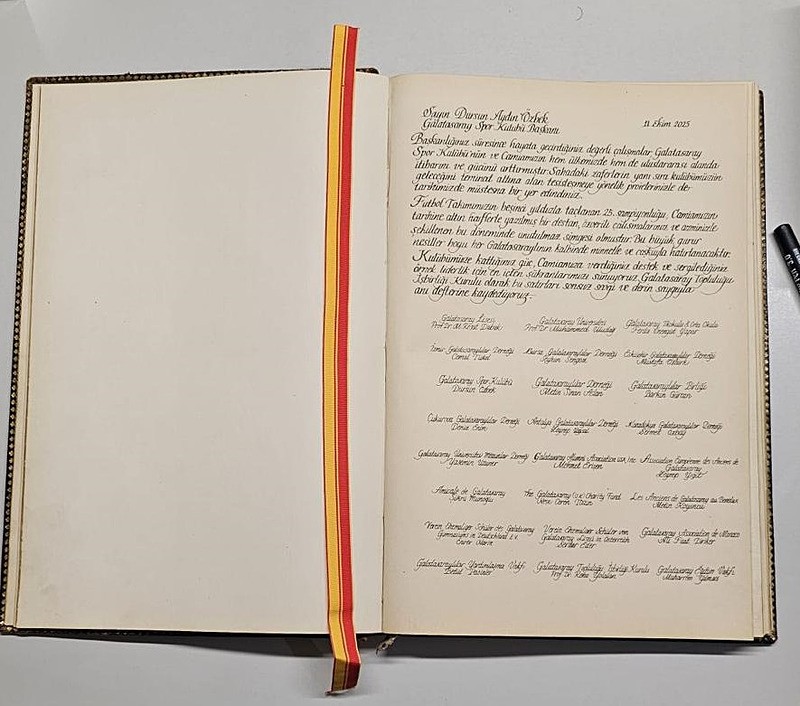 Sayın Dursun Aydın Özbek
Galatasaray Spor Kulübü Başkanı
11 Ekim 2025
Başkanlığınız süresince hayata geçirdiğiniz değerli çalışmalar, Galatasaray
Spor Kulübü'nün ve Camiamızın hem ülkemizde hem de uluslararası alanda
itibarını ve gücünü arttırmıştır. Sahadaki zaferlerin yanı sıra kulübümüzün
geleceğini teminat altına alan tesisleşmeye yönelik projelerinizle de
tarihimizde müstesna bir yer edindiniz.
Futbol Takımımızın beşinci yıldızla taçlanan 25. şampiyonluğu, Camiamızın
tarihine altın harflerle yazılmış bir destan, özverili çalışmalarınız ve azminizle
şekillenen bu döneminde unutulmaz simgesi olmuştur. Bu büyük gurur
nesiller boyu her Galatasaraylının kalbinde minnetle ve coşkuyla hatırlanacaktır.
Kulübümüze kattığınız güç, Camiamıza verdiğiniz destek ve sergilediğiniz
örnek liderlik için en içten şükranlarımızı sunuyoruz. Galatasaray Topluluğu
İşbirliği Kurulu olarak bu satırları sonsuz sevgi ve derin saygıyla
anı defterine kaydediyoruz.
Galatasaray Lisesi Galatasaray Üniversitesi Galatasaray İlkokulu & Orta Okulu
Prof. Dr. M. Reşat Dabak Prof. Dr. Muhammed Uludağ Ferda Yapar
İzmir Galatasaraylılar Derneği Bursa Galatasaraylılar Derneği Eskişehir Galatasaraylılar Derneği
Cemal Tükel Ceyhun Mustafa
Galatasaray Spor Kulübü Galatasaraylılar Derneği Galatasaraylılar Birliği
Dursun Özbek Metin Sinan Aslan Barkın Gürcan
Çukurova Galatasaraylılar Derneği Antalya Galatasaraylılar Derneği Karadeniz Galatasaraylılar Derneği
Deniz Zeynep Sermet
Galatasaray Üniversitesi Mezunlar Derneği Galatasaray Alumni Association USA Inc. Association Européenne des Anciens de
Galatasaray
Yasemin Mehmet Ersen Zeynep Yiğit
Amicale de Galatasaray The Galatasaray (U.K) Charity Fund Les Anciens de Galatasaray au Benelux
Şükrü Ceren Metin Koyuncu
Verein Ehemaliger Schüler des Galatasaray Verein Ehemaliger Schüler von Galatasaray Association de Monaco
Gymnasiums in Deutschland e.V. Galatasaray Lisesi in Österreich Ali Fuat
Enver Serdar Eder
Galatasaraylılar Yardımlaşma Vakfı Galatasaray Topluluğu İşbirliği Kurulu Galatasaray Eğitim Vakfı
Prof. Dr. Muharrem Yılmaz